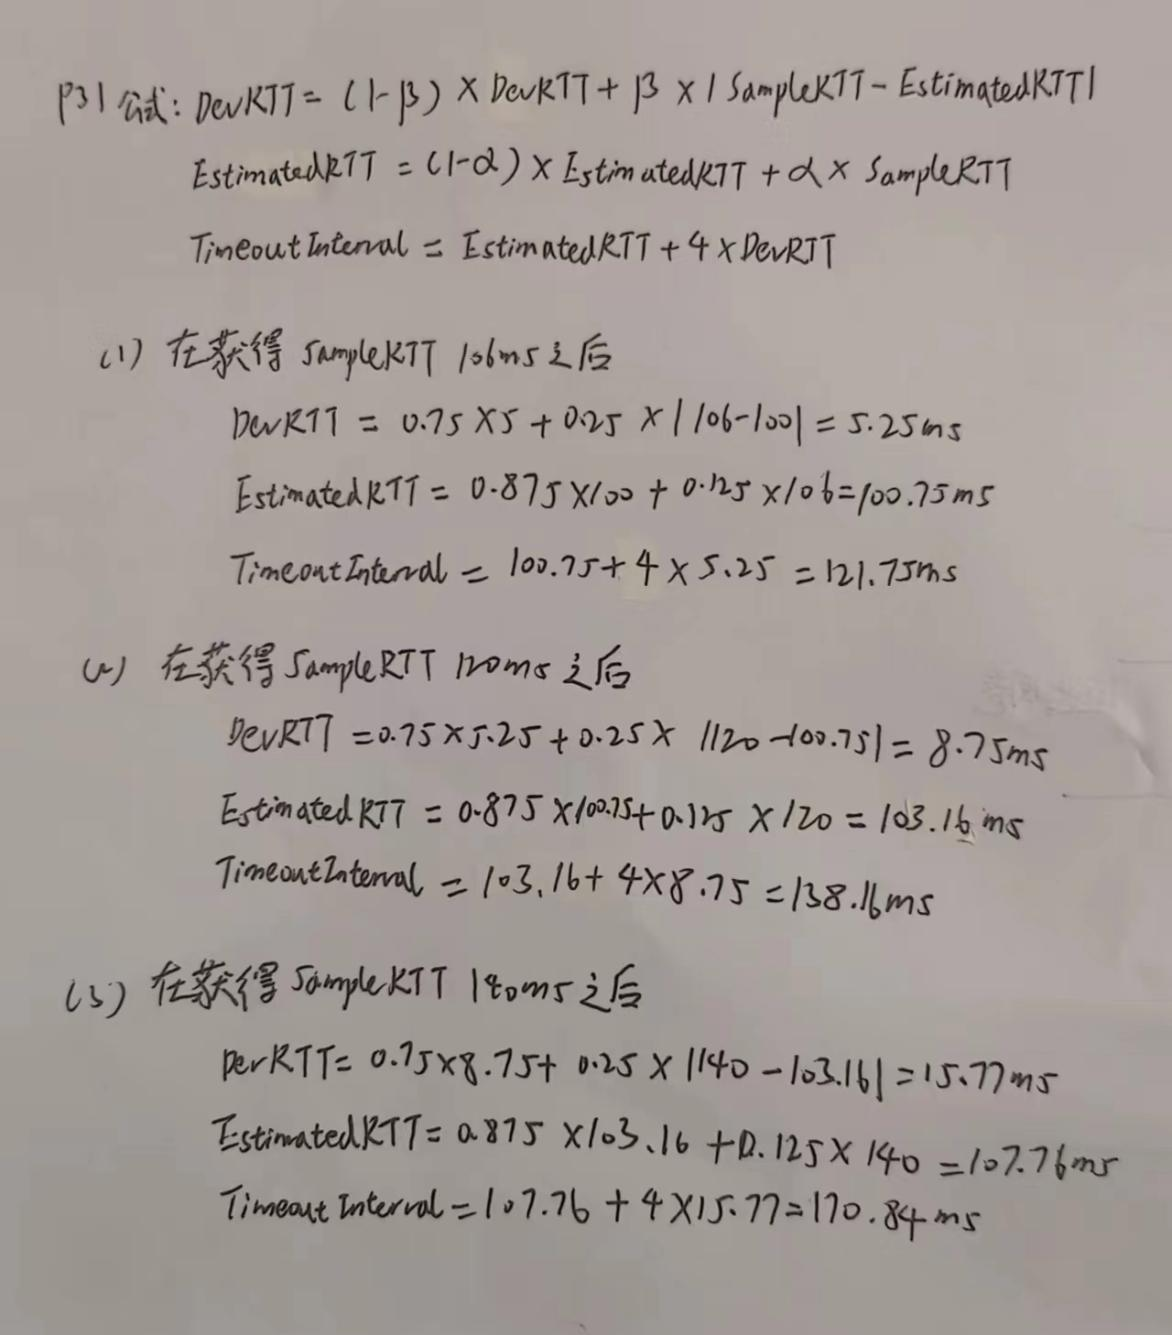 P31 公式: DevRTT = (1-β) × DevRTT + β × |SampleRTT - EstimatedRTT|
EstimatedRTT = (1-α) × EstimatedRTT + α × SampleRTT
TimeoutInterval = EstimatedRTT + 4 × DevRTT
(1) 在获得 SampleRTT 106ms 之后
DevRTT = 0.75 × 5 + 0.25 × |106-100| = 5.25ms
EstimatedRTT = 0.875 × 100 + 0.125 × 106 = 100.75ms
TimeoutInterval = 100.75 + 4 × 5.25 = 121.75ms
(2) 在获得 SampleRTT 120ms 之后
DevRTT = 0.75 × 5.25 + 0.25 × |120-100.75| = 8.75ms
EstimatedRTT = 0.875 × 100.75 + 0.125 × 120 = 103.16ms
TimeoutInterval = 103.16 + 4×8.75 = 138.16ms
(3) 在获得 SampleRTT 140ms 之后
DevRTT = 0.75×8.75 + 0.25 × |140 - 103.16| = 15.77ms
EstimatedRTT = 0.875 × 103.16 + 0.125 × 140 = 107.76ms
TimeoutInterval = 107.76 + 4 × 15.77 = 170.84ms